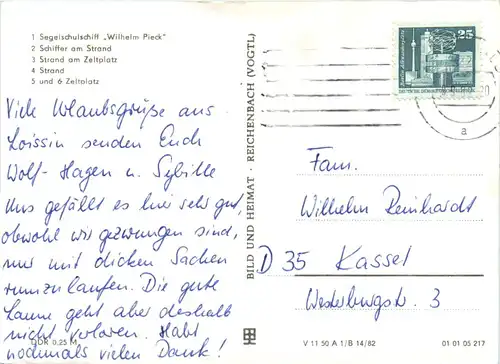 1 Segelschulschiff „Wilhelm Pieck“
2 Schiffer am Strand
3 Strand am Zeltplatz
4 Strand
5 und 6 Zeltplatz
Viele Urlaubsgrüße aus
Loissin senden Euch
Wolf-Hagen u. Sybille
Uns gefällt es hier sehr gut,
obwohl wir gezwungen sind,
nur mit dicken Sachen
rumzulaufen. Die gute
Laune geht aber deshalb
nicht verloren. Habt
nochmals vielen Dank!
DDR 0,25 M
BILD UND HEIMAT · REICHENBACH (VOGTL)
25
a
Fam.
Wilhelm Reinhardt
D 35 Kassel
Westerburgstr. 3
V 11 50 A 1/B 14/82
01 01 05 217